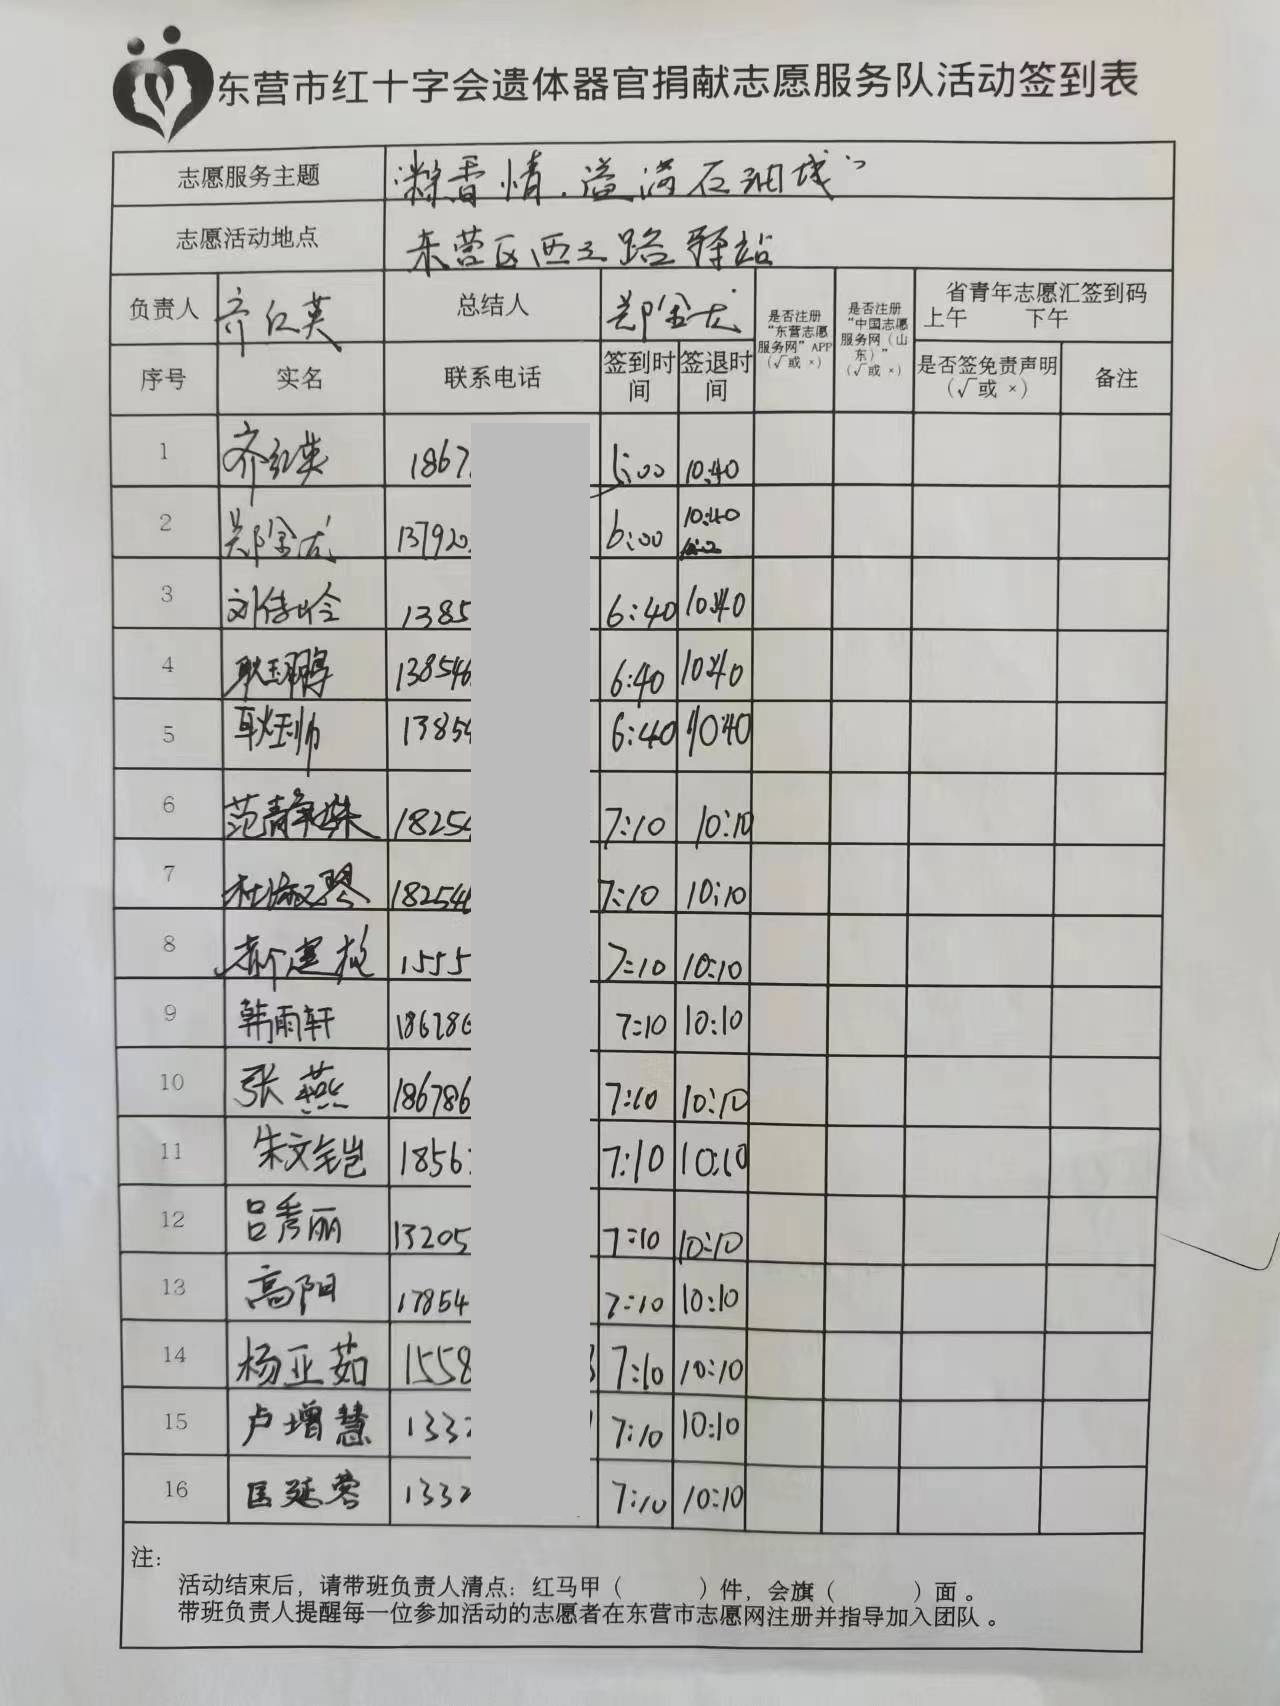 东营市红十字会遗体器官捐献志愿服务队活动签到表
志愿服务主题 “粽香情·溢满石油城”
志愿活动地点 东营区西三路驿站
负责人 齐红英 总结人 郑金龙 是否注册“东营志愿服务网”APP(√或 ×) 是否注册“中国志愿服务网(山东)”(√或 ×) 省青年志愿汇签到码 上午 下午
序号 实名 联系电话 签到时间 签退时间 是否签免责声明(√或 ×) 备注
1 齐红英 1867 5:00 10:40
2 郑金龙 13792 6:00 10:40
3 刘 1385 6:40 10:40
4 耿玉鹏 138546 6:40 10:40
5 耿玉帅 1385 6:40 10:40
6 范静姝 1825 7:10 10:10
7 杜淑琴 182546 7:10 10:10
8 1555 7:10 10:10
9 韩雨轩 186786 7:10 10:10
10 张燕 186786 7:10 10:10
11 朱文 1856 7:10 10:10
12 吕秀丽 13205 7:10 10:10
13 高阳 17854 7:10 10:10
14 杨亚茹 1558 7:10 10:10
15 卢增慧 133 7:10 10:10
16 匡延蓉 133 7:10 10:10
注:
活动结束后,请带班负责人清点:红马甲( )件,会旗( )面。
带班负责人提醒每一位参加活动的志愿者在东营市志愿网注册并指导加入团队。